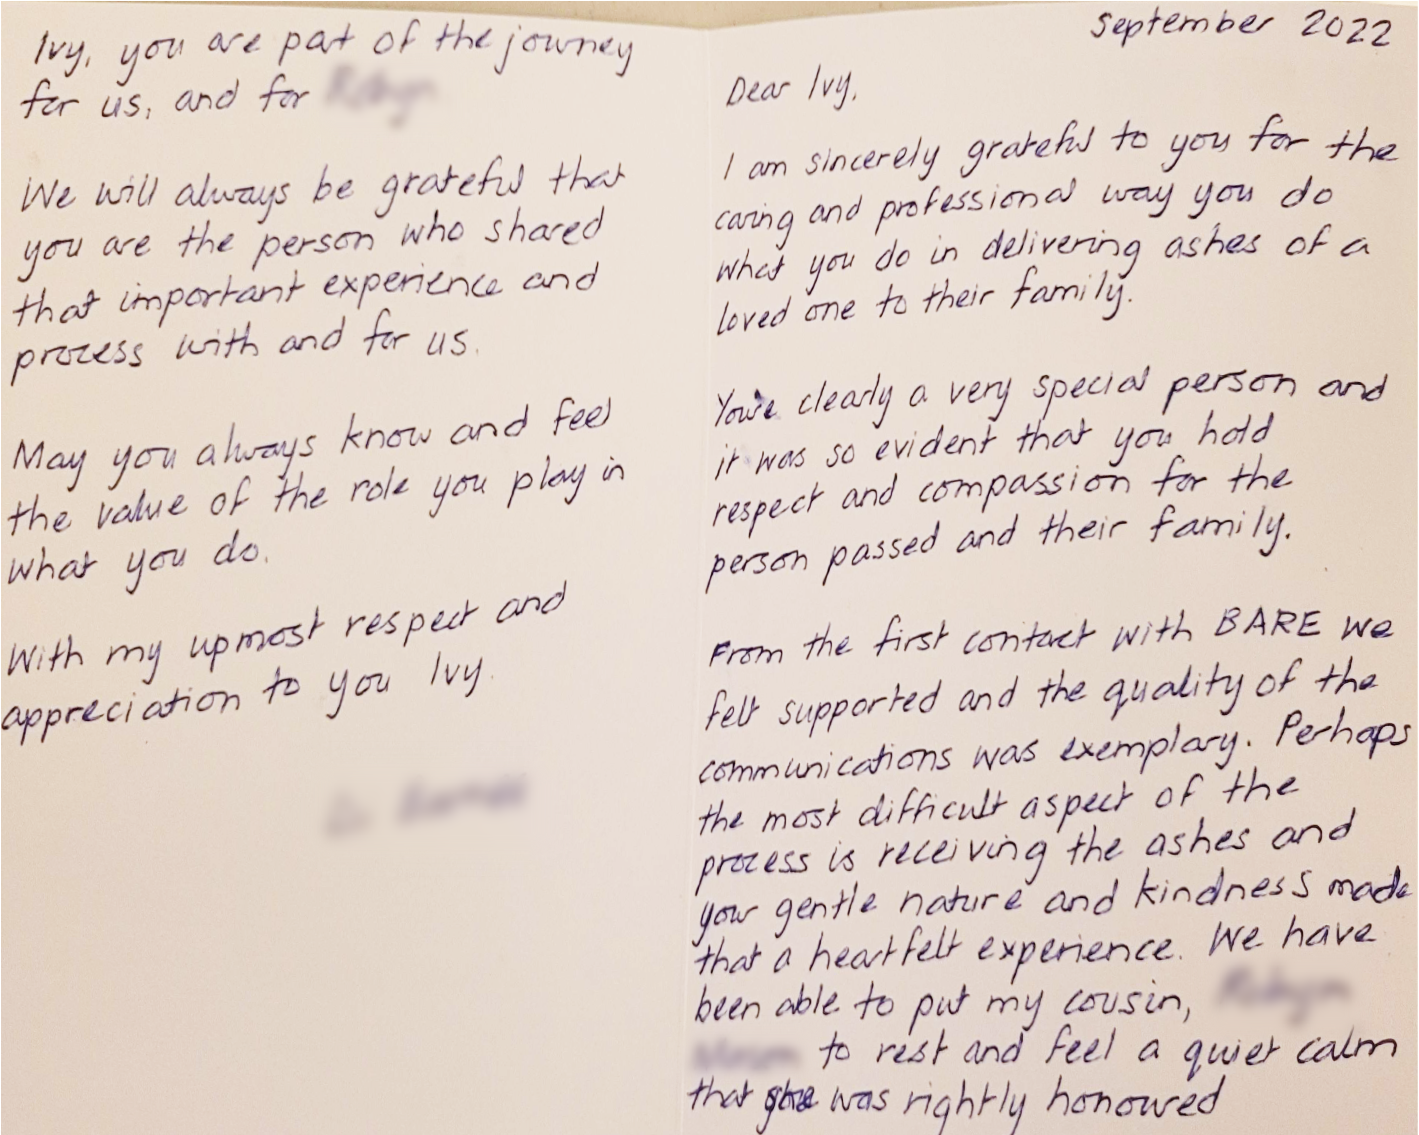 September 2022
Dear Ivy,
I am sincerely grateful to you for the
caring and professional way you do
what you do in delivering ashes of a
loved one to their family.
You're clearly a very special person and
it was so evident that you hold
respect and compassion for the
person passed and their family.
From the first contact with BARE we
felt supported and the quality of the
communications was exemplary. Perhaps
the most difficult aspect of the
process is receiving the ashes and
your gentle nature and kindness made
that a heartfelt experience. We have
been able to put my cousin,
to rest and feel a quiet calm
that she was rightly honoured
Ivy, you are part of the journey
for us, and for
We will always be grateful that
you are the person who shared
that important experience and
process with and for us.
May you always know and feel
the value of the role you play in
what you do.
With my upmost respect and
appreciation to you Ivy.